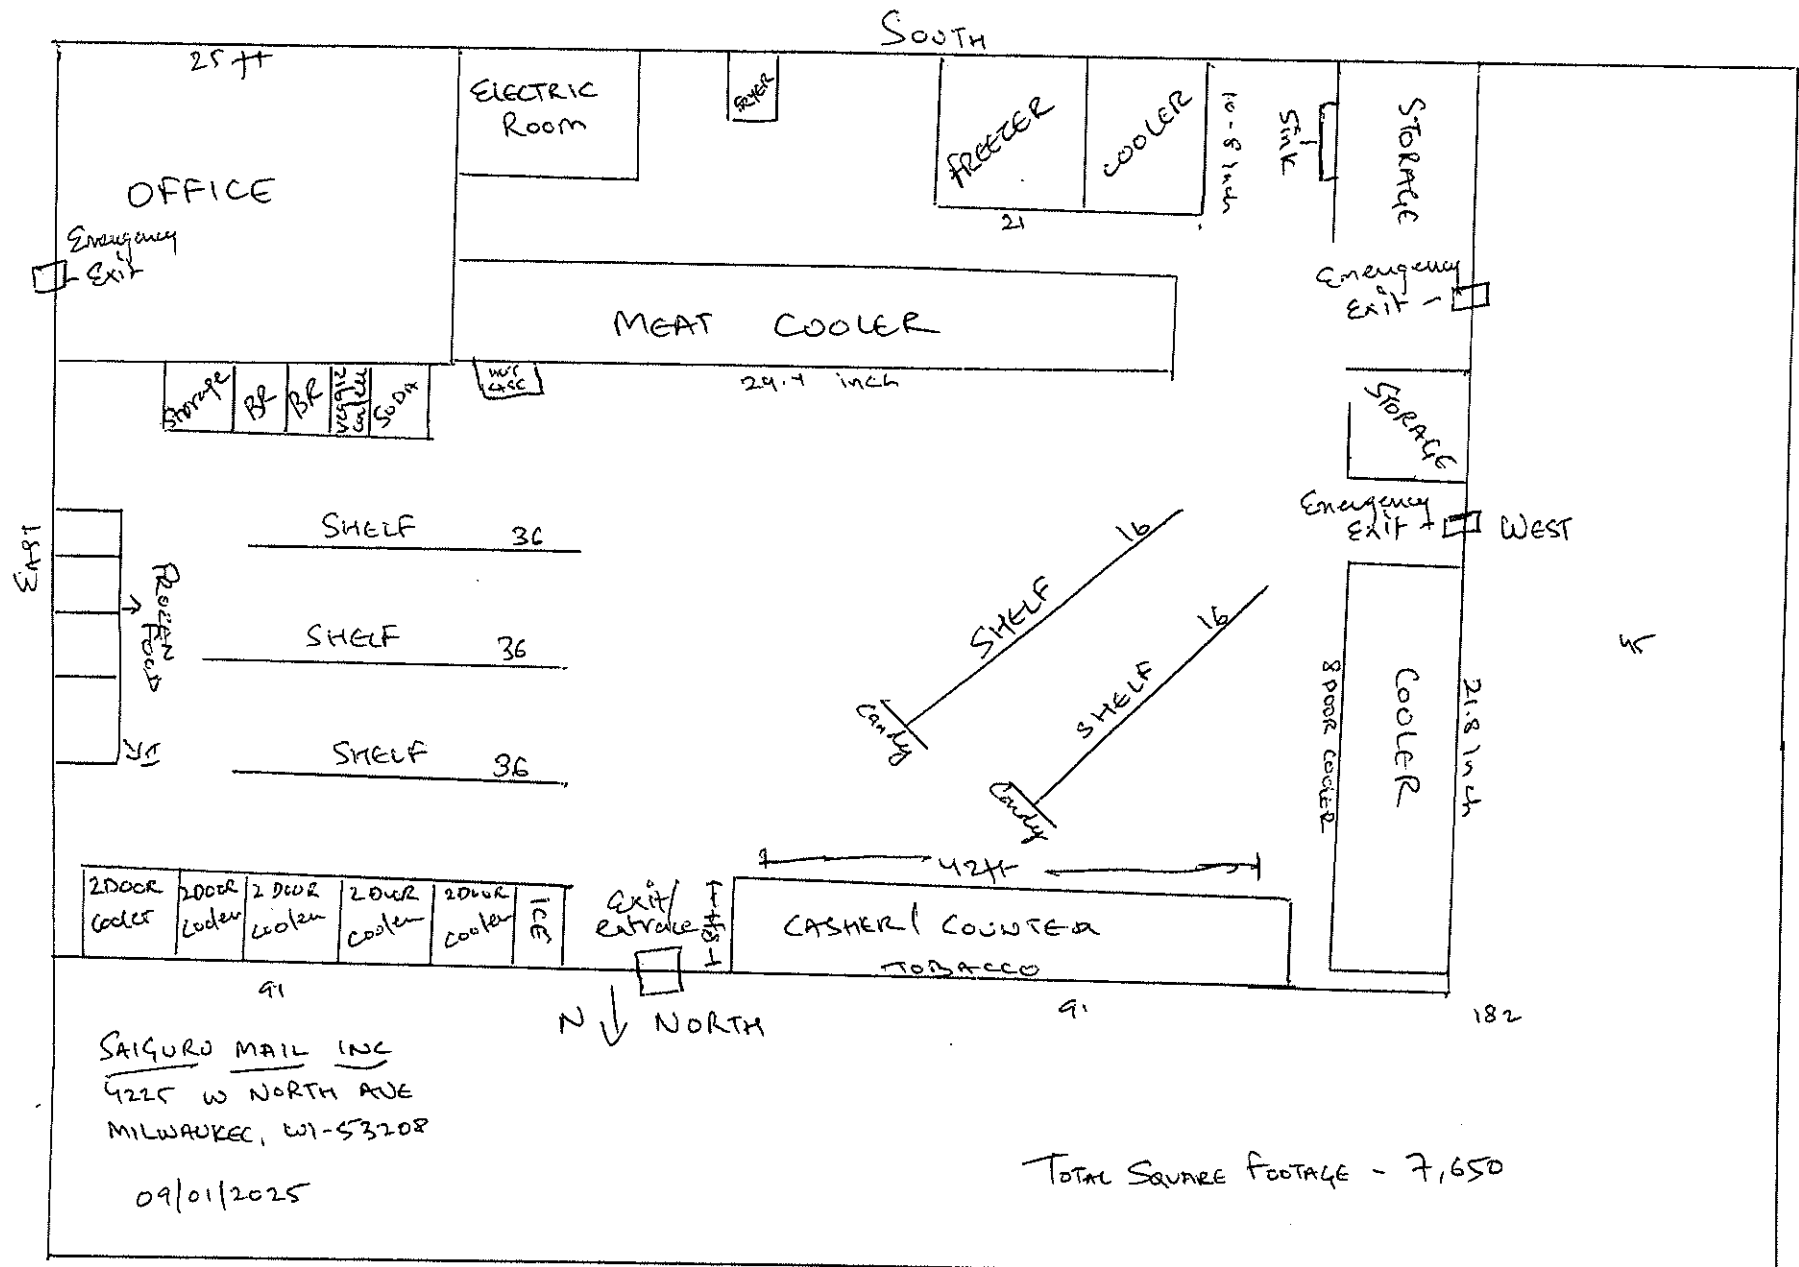 SOUTH
25 ft
ELECTRIC
ROOM
FRYER
FREEZER
COOLER
10-8 inch
Sink
STORAGE
OFFICE
21
Emergency
Exit
Emergency
Exit
MEAT COOLER
29.4 inch
Storage
BR
BR
SODA
STORAGE
Emergency
Exit
WEST
EAST
FROZEN
FOOD
SHELF 36
SHELF 36
SHELF 36
SHELF 16
SHELF 16
Candy
Candy
45
COOLER
8 DOOR COOLER
21.8 inch
42ft
2 DOOR
cooler
2 DOOR
cooler
2 DOOR
cooler
2 DOOR
cooler
2 DOOR
cooler
ICE
Exit/
entrace
CASHER/ COUNTER
TOBACCO
91
N NORTH
91
182
SAIGURU MAIL INC
4225 W NORTH AVE
MILWAUKEE, WI-53208
09/01/2025
TOTAL SQUARE FOOTAGE - 7,650